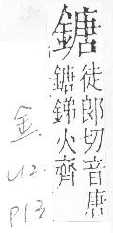 鎕
徒郎切音唐
鎕銻火齊
金
U12.
P13